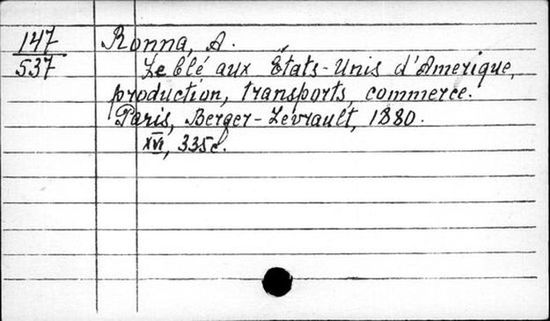 147 Ronna, A.
537 Le blé aux États-Unis d'Amerique,
production, transports, commerce.
Paris, Berger-Levrault, 1880.
XVI, 335 c.